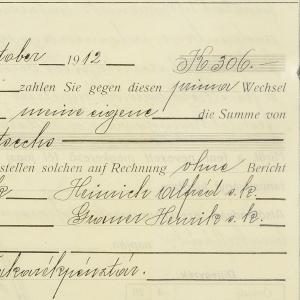 tober 1912 K 306.-
zahlen Sie gegen diesen prima Wechsel
meine eigene die Summe von
sechs
stellen solchen auf Rechnung ohne Bericht
Heinrich Alfréd s.k.
Graner Henrik s.k.
takarékpénztár.